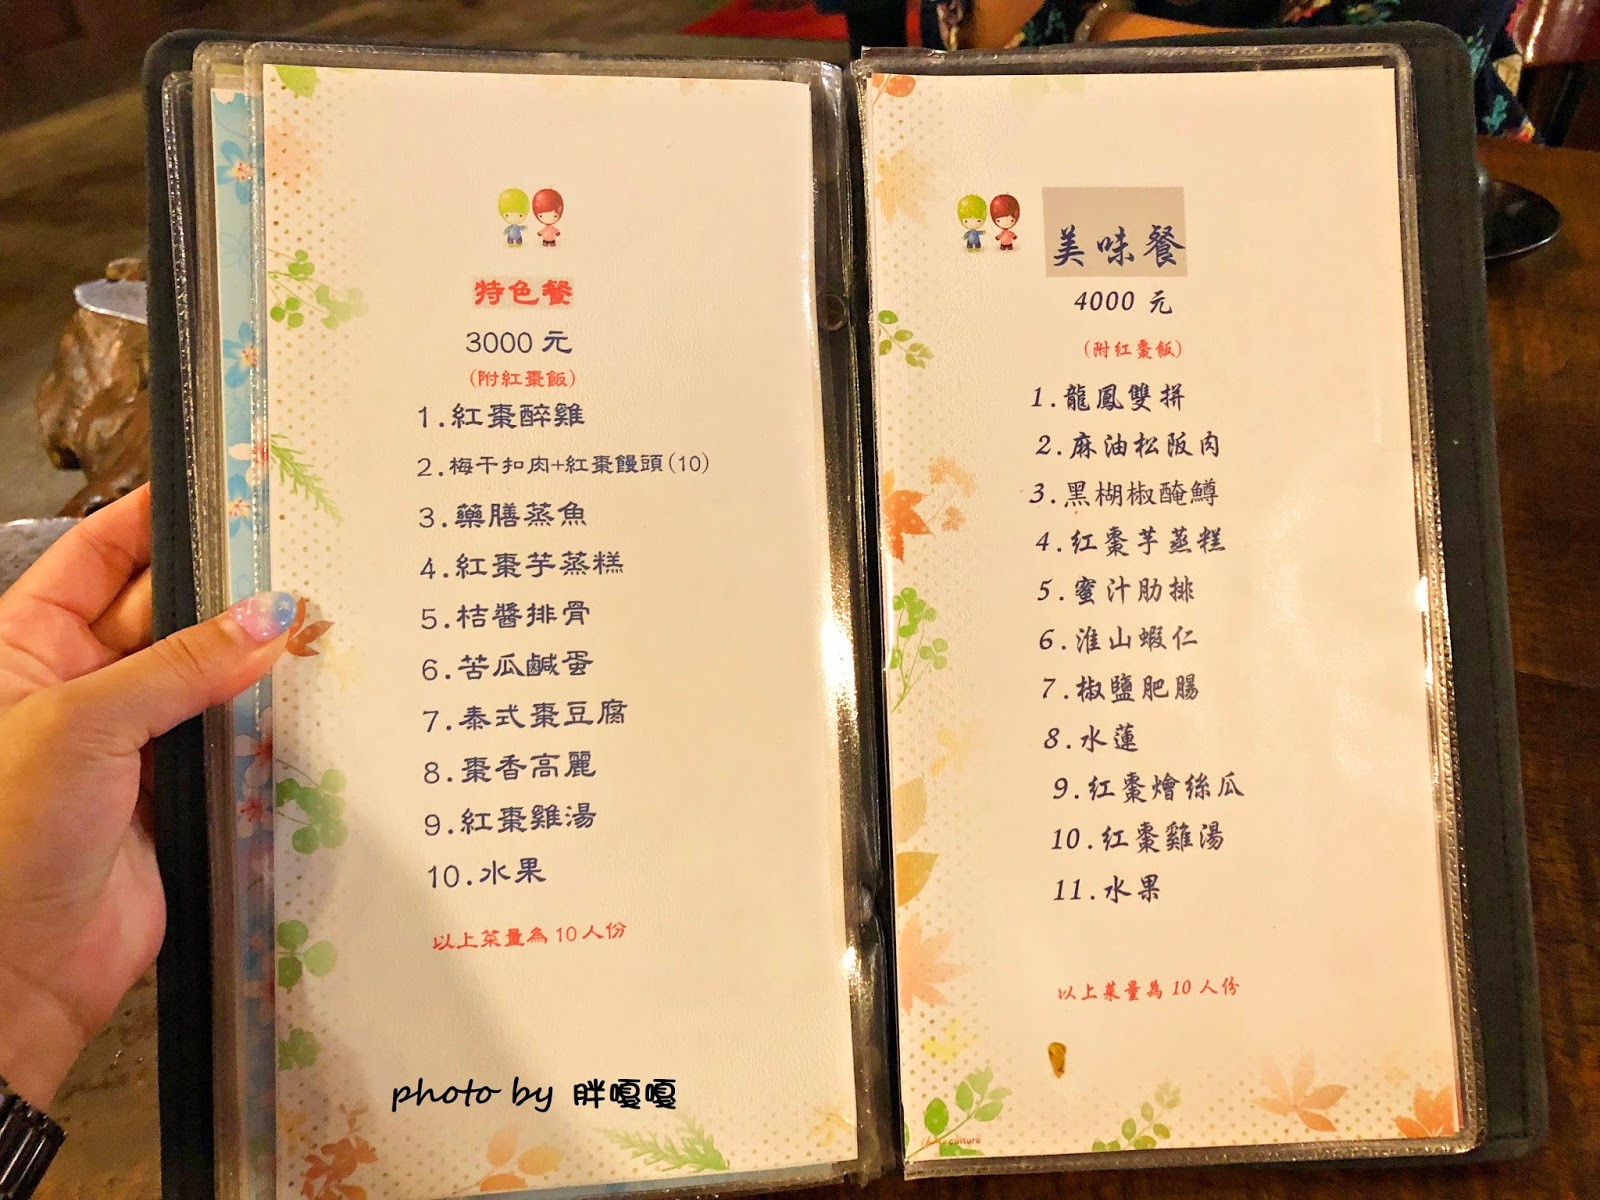 特色餐
3000 元
(附紅棗飯)
1.紅棗醉雞
2.梅干扣肉+紅棗饅頭(10)
3.藥膳蒸魚
4.紅棗芋蒸糕
5.桔醬排骨
6.苦瓜鹹蛋
7.泰式棗豆腐
8.棗香高麗
9.紅棗雞湯
10.水果
以上菜量為10人份
photo by 胖嘎嘎
美味餐
4000 元
(附紅棗飯)
1.龍鳳雙拼
2.麻油松阪肉
3.黑楜椒醃鱒
4.紅棗芋蒸糕
5.蜜汁肋排
6.淮山蝦仁
7.椒鹽肥腸
8.水蓮
9.紅棗燴絲瓜
10.紅棗雞湯
11.水果
以上菜量為10人份
culture